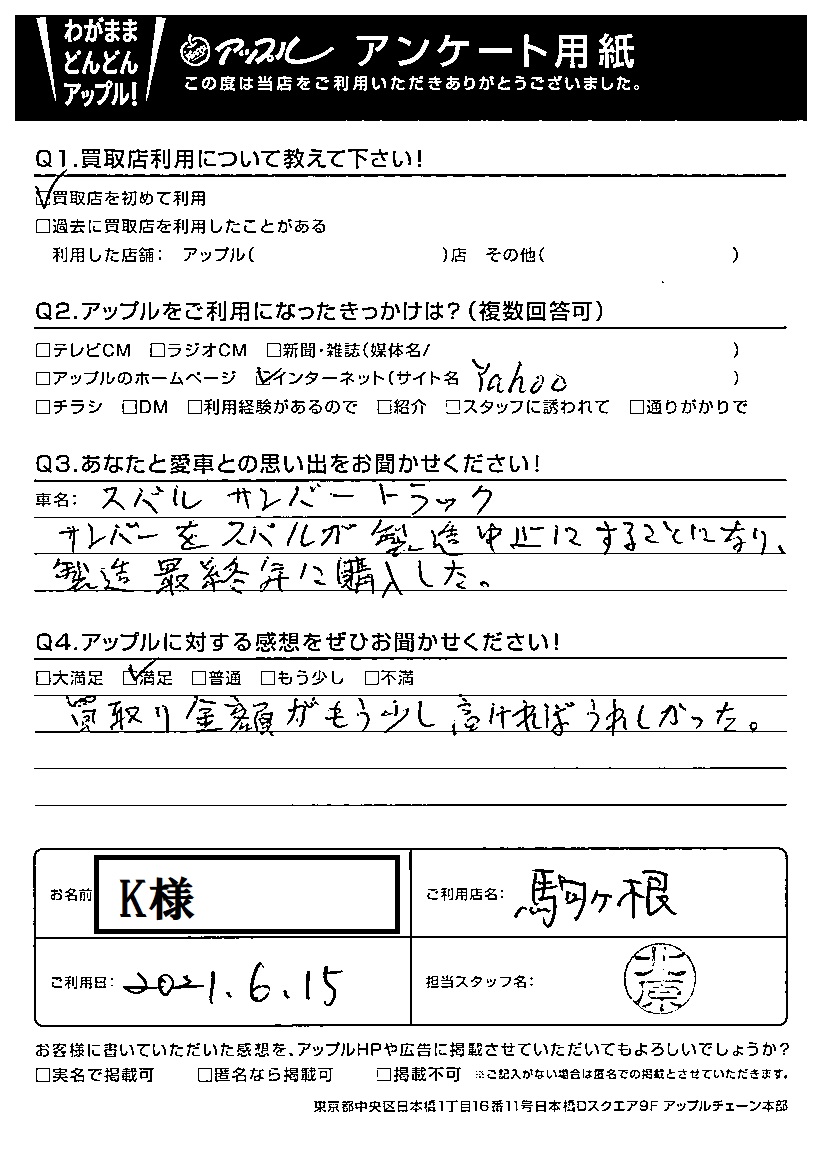 わがまま
どんどん
アップル!
アップル アンケート用紙
この度は当店をご利用いただきありがとうございました。
Q1.買取店利用について教えて下さい!
☑買取店を初めて利用
□過去に買取店を利用したことがある
利用した店舗: アップル( )店 その他( )
Q2.アップルをご利用になったきっかけは?(複数回答可)
□テレビCM □ラジオCM □新聞・雑誌(媒体名/ )
□アップルのホームページ ☑インターネット(サイト名 Yahoo )
□チラシ □DM □利用経験があるので □紹介 □スタッフに誘われて □通りがかりで
Q3.あなたと愛車との思い出をお聞かせください!
車名: スバル サンバートラック
サンバーをスバルが製造中止にすることになり、
製造最終年に購入した。
Q4.アップルに対する感想をぜひお聞かせください!
□大満足 ☑満足 □普通 □もう少し □不満
買取り金額がもう少し高ければうれしかった。
お名前 K様 ご利用店名: 駒ヶ根
ご利用日: 2021.6.15 担当スタッフ名: 北原
お客様に書いていただいた感想を、アップルHPや広告に掲載させていただいてもよろしいでしょうか?
□実名で掲載可 □匿名なら掲載可 □掲載不可 ※ご記入がない場合は匿名での掲載とさせていただきます。
東京都中央区日本橋1丁目16番11号日本橋Dスクエア9F アップルチェーン本部